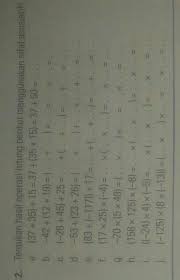 2. Tentukan hasil operasi hitung berikut menggunakan sifat asosiatif!
a. (37 + 35) + 15 = 37 + (35 + 15) = 37 + 50 = ....
b. -42 + (12 + 19) = ( ... + ... ) + ... = ... + ... = ....
c. (-28 + 45) + 25 = ... + ( ... + ... ) = ... + ... = ....
d. -53 + (23 + 26) = ( ... + ... ) + ... = ... + ... = ....
e. (83 + (-117)) + 17 = ... + ( ... + ... ) = ... + ... = ....
f. (17 × 25) × (-4) = ... × ( ... × ... ) = ... × ... = ....
g. -70 × (5 × 49) = ( ... × ... ) × ... = ... × ... = ....
h. (158 × 125) × (-8) = ... × ( ... × ... ) = ... × ... = ....
i. ((-24) × 5) × (-8) = ... × ( ... × ... ) = ... × ... = ....
j. (-125) × (8 × (-13)) = ( ... × ... ) × ... = ... × ... = ....